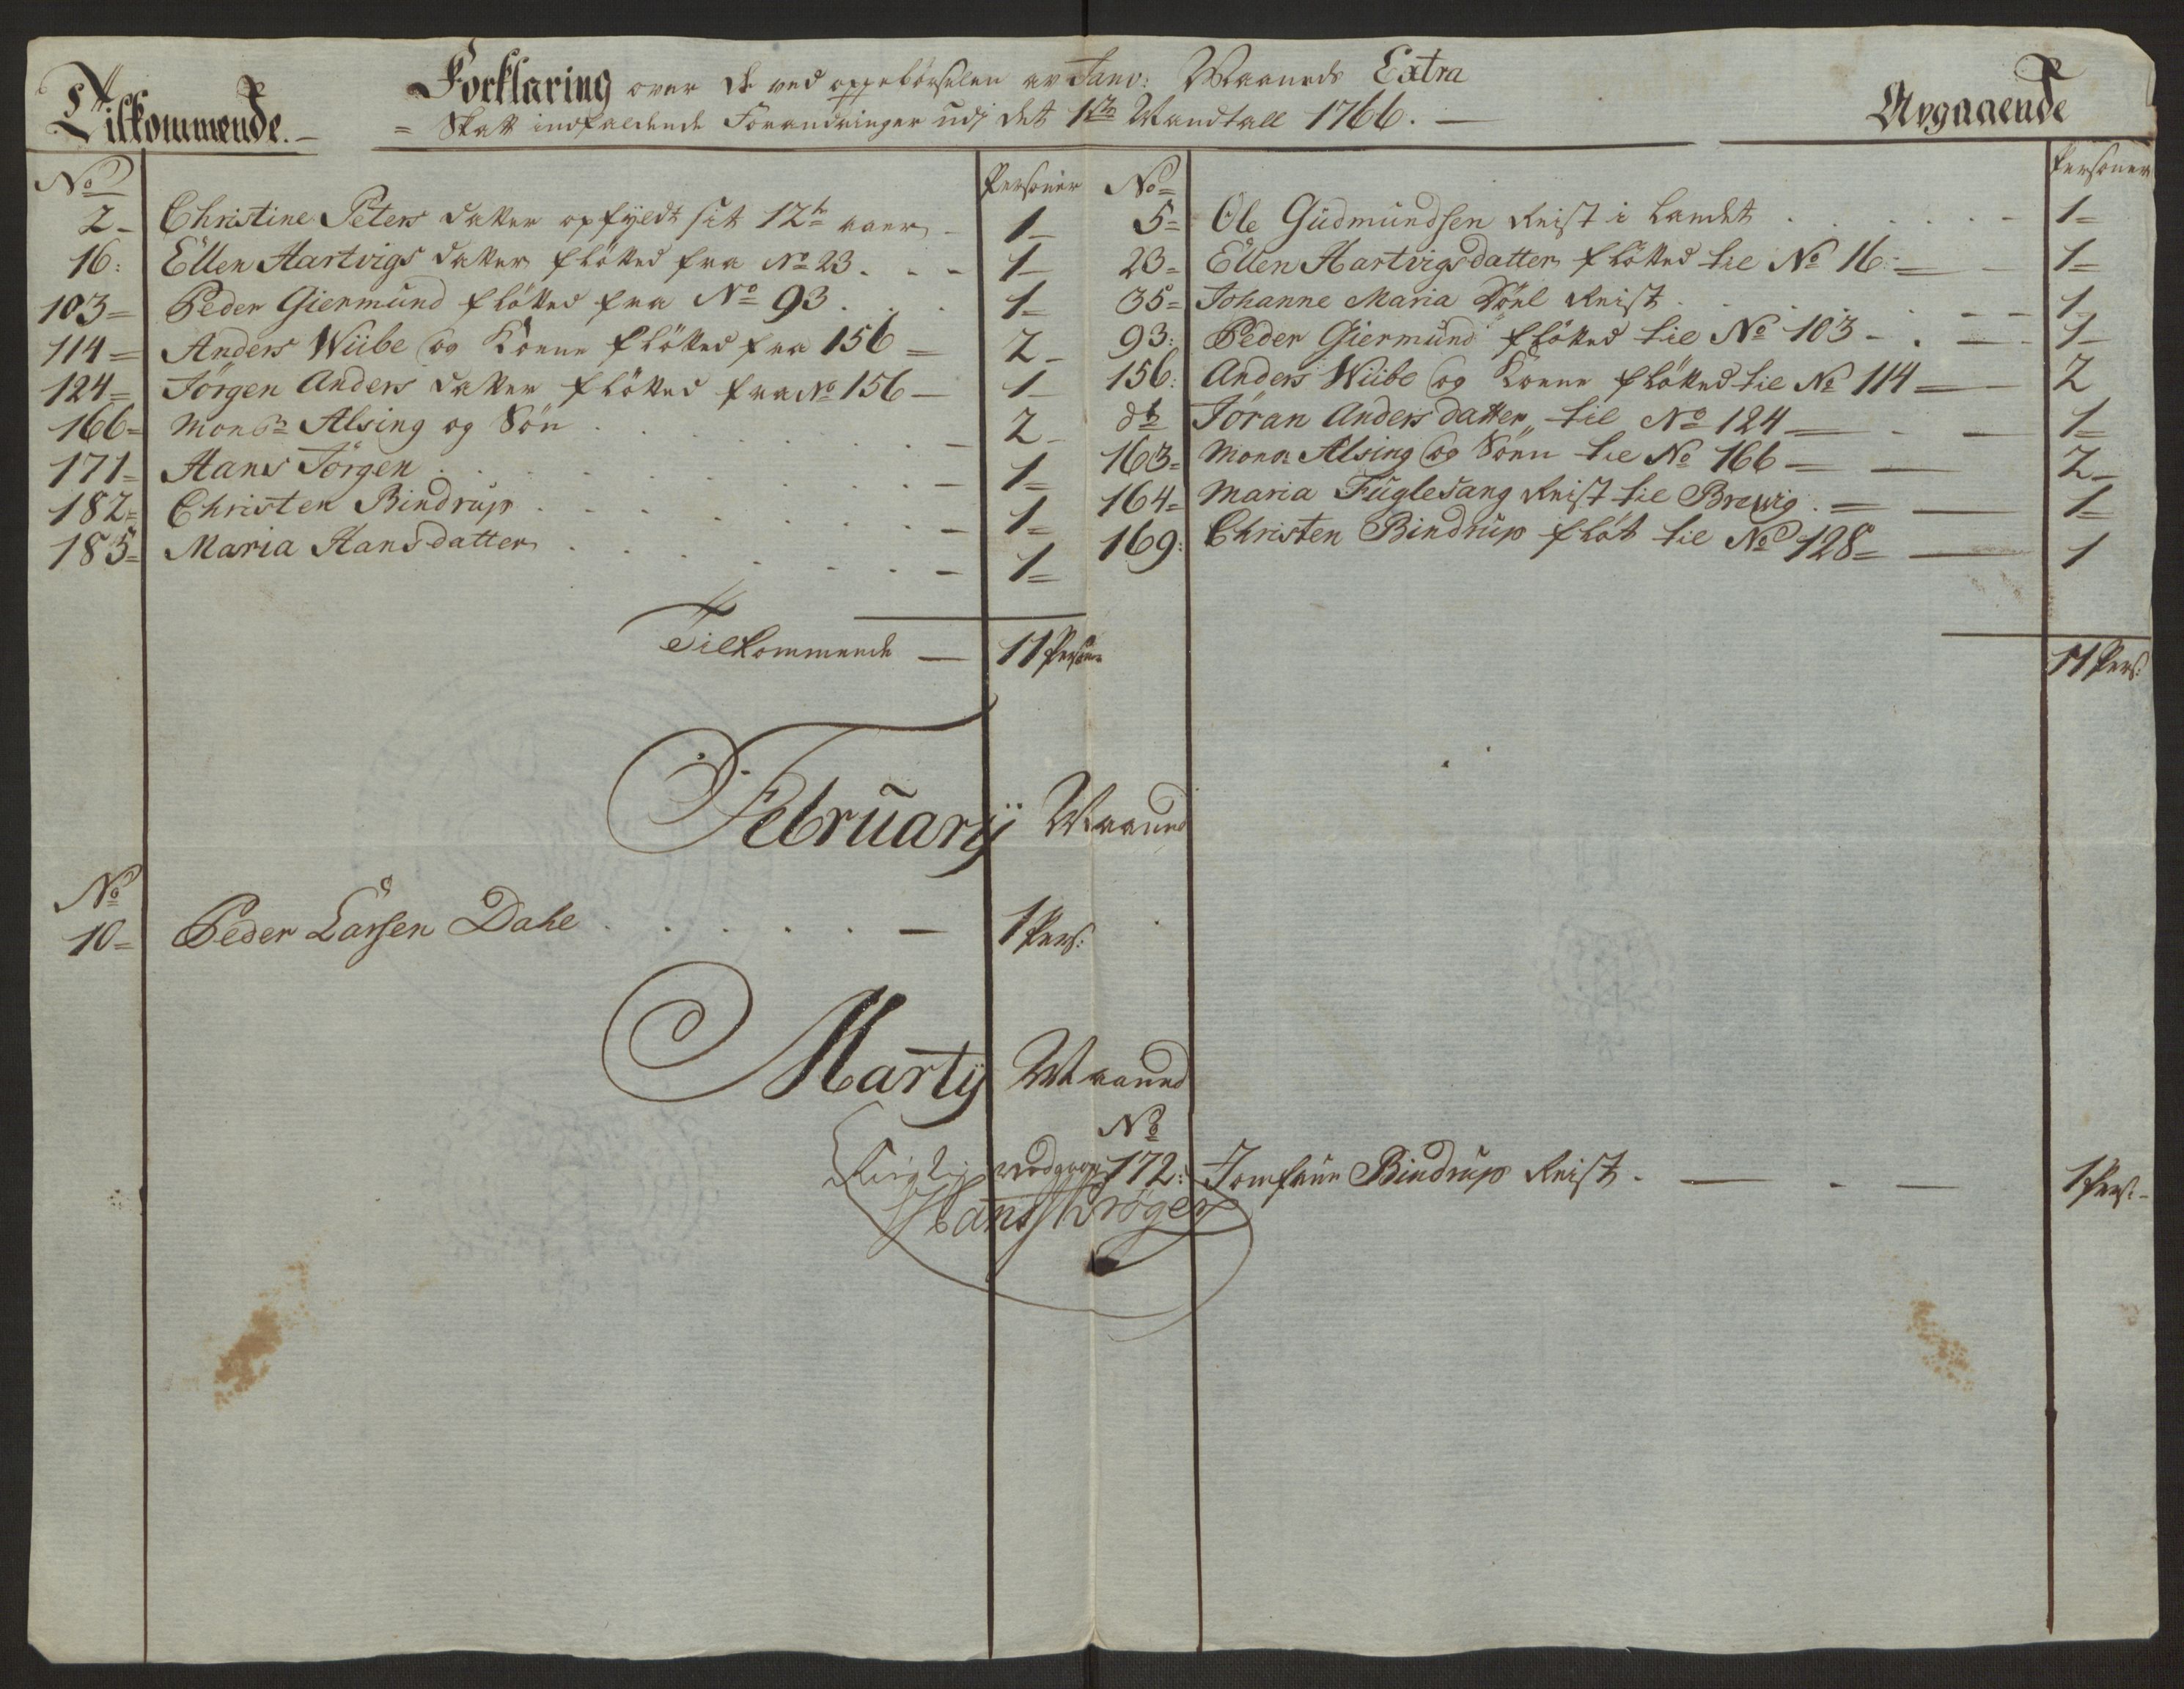 Tilkommende.
Forklaring over de ved oppebörselen av Janv: Maaneds Extra
= Skatt indfaldende Forandringer udj det 1ste Mandtall 1766.
Avgaaende
No Personer
2 - Christine Peters datter opfyldt sit 12te aar - 1 -
16: Ellen Hartvigs datter flötted fra No 23. - 1 -
103 = Peder Giermund flötted fra No 93. 1 -
114 = Anders Wiibe og Kone flötted fra 156 = 2 -
124 = Jörgen Anders datter flötted fra No 156 - 1 -
166 = Monsr Alsing og Sön - 2 -
171 = Hans Jörgen - 1 =
182 = Christen Bindrup - 1 =
185 = Maria Hansdatter - 1 =
Tilkommende - 11 Personer
No = Personer
5 = Ole Gudmundsen Reist i Landet - 1 =
23 = Ellen Hartvigsdatter flötted til No 16: - 1 =
35 = Johanne Maria Reist - 1
93: Peder Giermund flötted til No 103 - 1 -
156: Anders Wiibe og Kone flötted til No 114 - 2
dto Jöran Andersdatter til No 124 - 1 =
163 = Monsr Alsing og Sönn til No 166 - 2 -
164 = Maria Fuglesang Reist til Brevig. = 1 =
169: Christen Bindrup flöt til No 128 = 1
11 Pers:
Februarij Maaned
No
10 = Peder Larsen Dahl - 1 Pers:
Martij Maaned
No
172: Jomfrue Bindrup Reist. - 1 Pers: -
Rigtig vedgaar
Hans Kröger